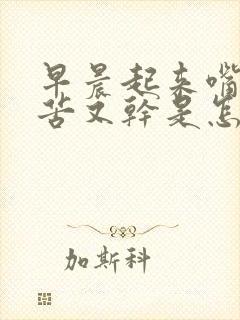 早晨起来嘴
苦又幹是怎
加斯科